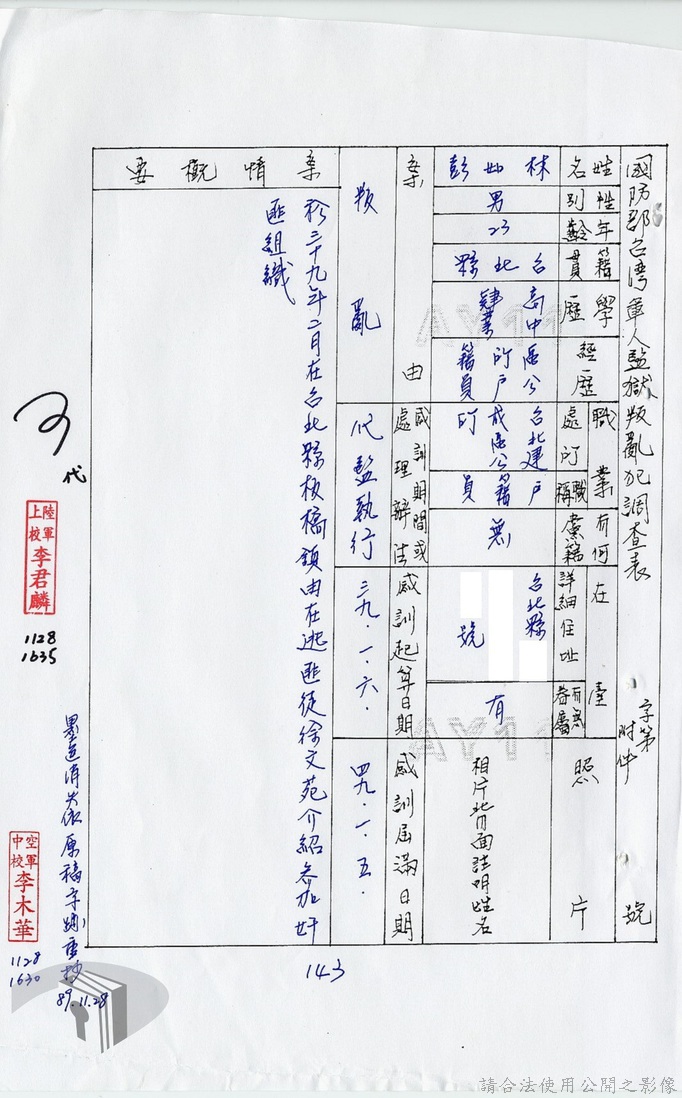 國防部台灣軍人監獄叛亂犯調查表
字第 號
附件
姓名
林如彭
性別
男
年齡
23
籍貫
台北縣
學歷
高中肄業
經歷
區公所戶籍員
職業
處所
台北建成區公所
職稱
戶籍員
有何黨籍
無
在臺
詳細住址
台北縣
號
有無眷屬
有
照片
相片背面註明姓名
案由
叛亂
感訓期間或處理辦法
代監執行
感訓起算日期
三九.一.六.
感訓屆滿日期
四九.一.五.
案情概要
於三十九年二月在台北縣板橋鎮由在逃匪徒徐文苑介紹參加奸
匪組織
代
陸軍上校李君麟
1128
1635
墨迹消失依原稿字跡重抄
89.11.28
空軍中校李木華
1128
1630
143
請合法使用公開之影像